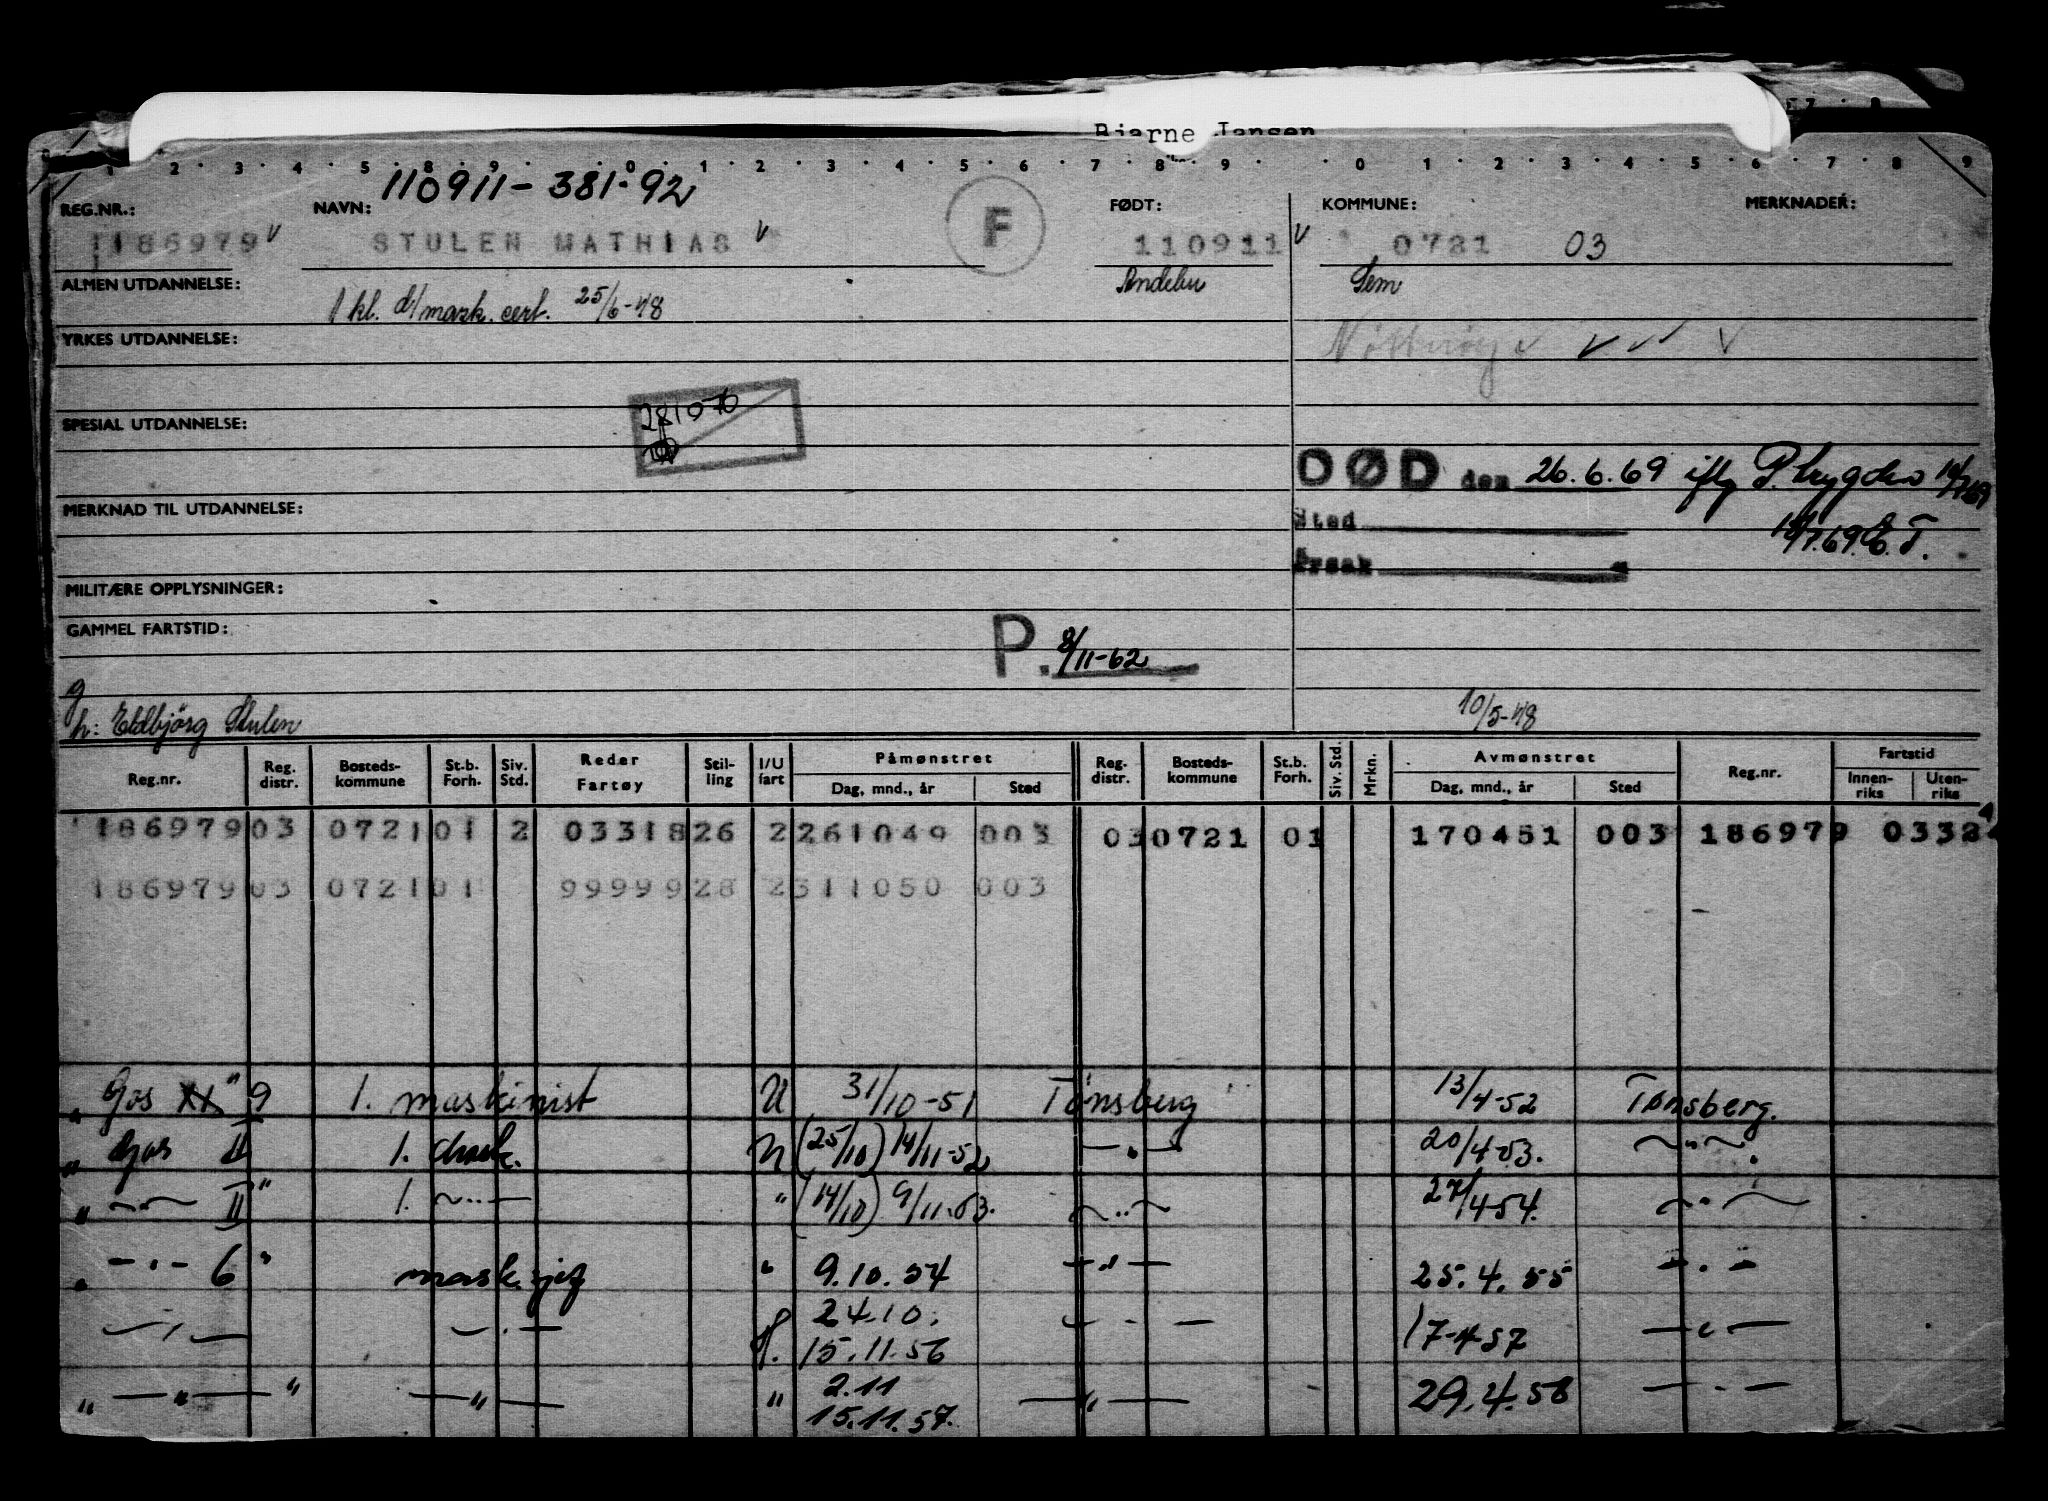 Bjarne Jansen
110911-381.92
REG.NR.: NAVN: F FØDT: KOMMUNE: MERKNADER:
186979 v STULEN MATHIAS v 110911 v 0721 03
ALMEN UTDANNELSE: Andebu Sem
1 kl. d/mask. cert. 25/6-48
YRKES UTDANNELSE: Nøtterøy v v v v
281076
SPESIAL UTDANNELSE:
DØD den 26.6.69 iflg P.trygden
MERKNAD TIL UTDANNELSE: Sted
14/7.69. E.T.
Årsak
MILITÆRE OPPLYSNINGER:
GAMMEL FARTSTID:
P. 8/11-62
g
h: Eldbjörg Stulen 10/5-48
Reg.nr. Reg. distr. Bosteds- kommune St.b. Forh. Siv. Std. Reder Fartøy Stil- ling I/U fart Påmønstret Dag, mnd., år Sted Reg- distr. Bosteds- kommune St.b. Forh. Siv. Std. Mrkn. Avmønstret Dag, mnd., år Sted Reg.nr. Fartstid Innen- riks Uten- riks
186979 03 0721 01 2 03318 26 2 261049 003 03 0721 01 170451 003 186979 0332
186979 03 0721 01 99999 28 2 311050 003
„ Gos XX" 9 1. maskinist U 31/10-51 Tønsberg 13/4-52 Tønsberg.
„ Gos II 1. mask. U (25/10) 14/11-52 —"— 20/4-53. —"—.
„ —"— II" 1. —"— " (14/10) 9/11.53. —"— 27/4-54. —"—
„ —"— 6 " mask.sjef " 9.10.54 —"— 25.4.55 —"—
—"— —"— 24.10. —"— 17-4-57 —"—
15.11.56
„ —"— " —"— " 2.11 —"— 29.4.58 —"—
15.11.57.